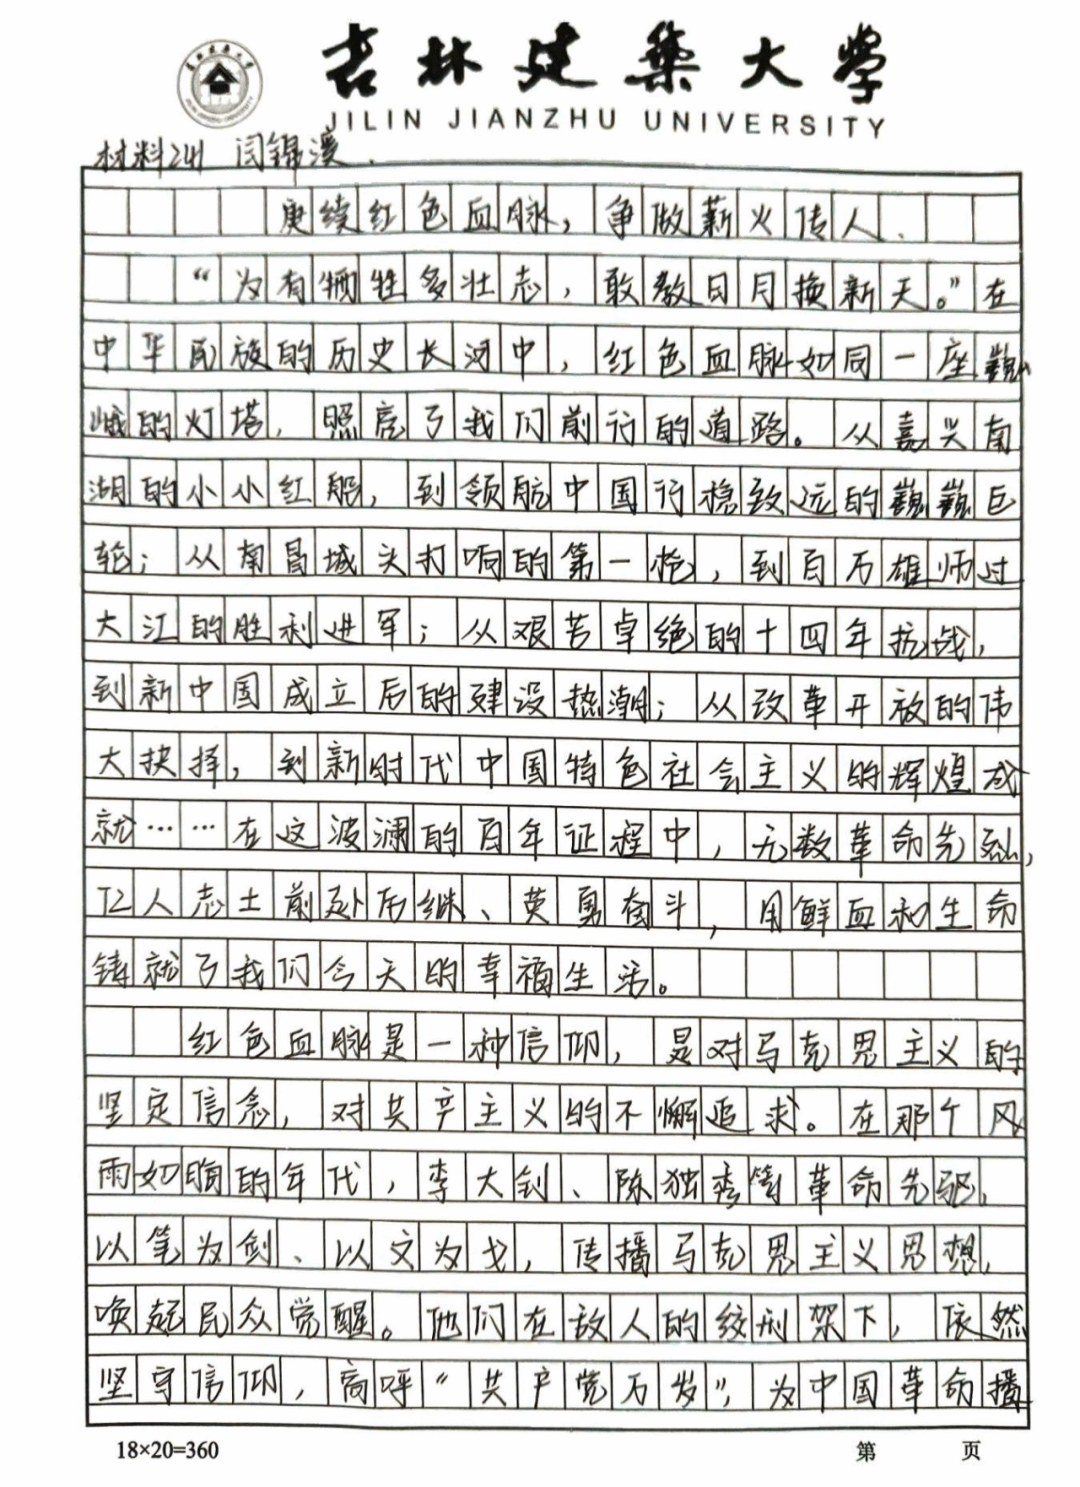 吉林建築大学
JILIN JIANZHU UNIVERSITY
材料241 闫锦溪.
庚续红色血脉，争做薪火传人.
“为有牺牲多壮志，敢教日月换新天。”在
中华民族的历史长河中，红色血脉如同一座巍
峨的灯塔，照亮了我们前行的道路。从嘉兴南
湖的小小红船，到领航中国行稳致远的巍巍巨
轮；从南昌城头打响的第一枪，到百万雄师过
大江的胜利进军；从艰苦卓绝的十四年抗战，
到新中国成立后的建设热潮；从改革开放的伟
大抉择，到新时代中国特色社会主义的辉煌成
就……在这波澜的百年征程中，无数革命先烈，
亿人志士前赴后继、英勇奋斗，用鲜血和生命
铸就了我们今天的幸福生活。
红色血脉是一种信仰，是对马克思主义的
坚定信念，对共产主义的不懈追求。在那个风
雨如晦的年代，李大钊、陈独秀等革命先驱，
以笔为剑、以文为戈，传播马克思主义思想，
唤起民众觉醒。他们在敌人的绞刑架下，依然
坚守信仰，高呼“共产党万岁”，为中国革命播
18×20=360
第 页